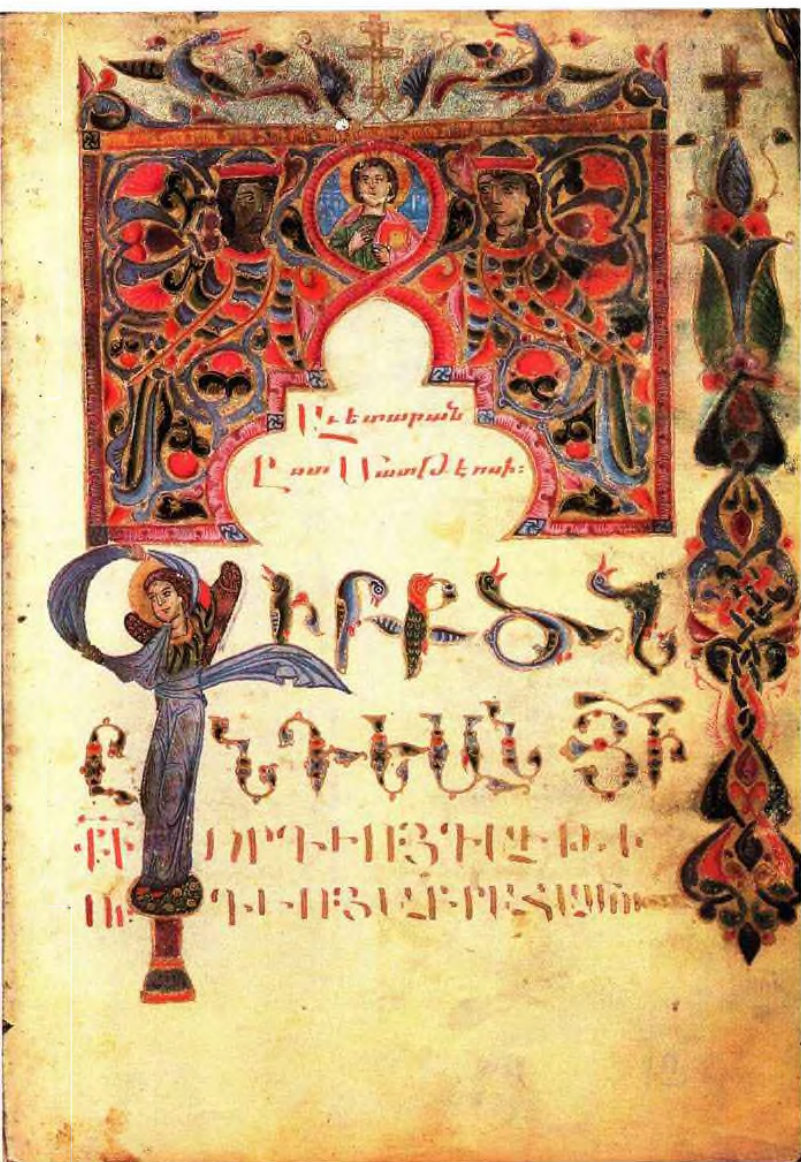 Աւետարան
Ըստ Մատթէոսի։
ԳԻՐՔ ԾՆ
ԸՆԴԵԱՆ ՅԻ
ՔԻ ՈՐԴՒՈՅ ԴԱՒԹԻ
ՈՐԴՒՈՅ ԱԲՐԱՀԱՄՈՒ